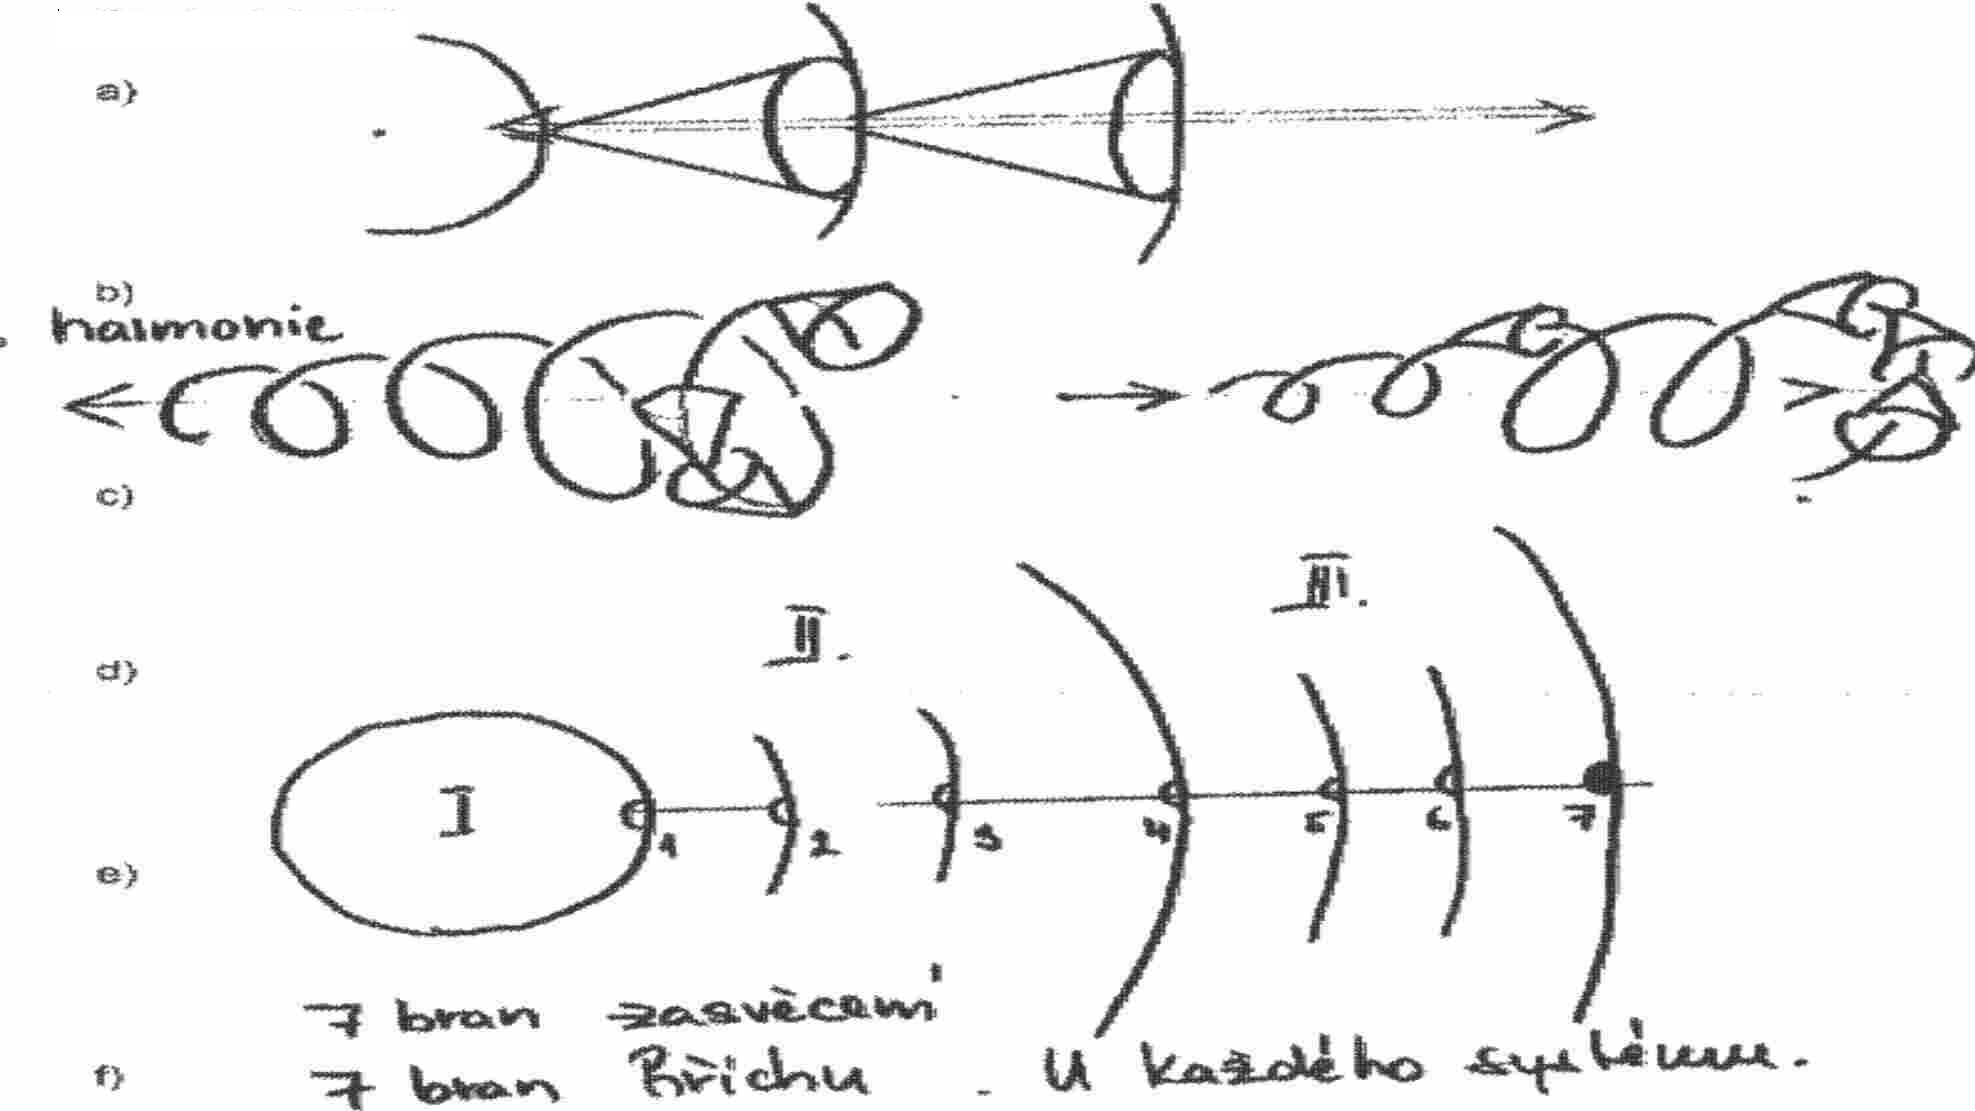 a)
b)
harmonie
c)
III.
II.
d)
I
1 2 3 4 5 6 7
e)
7 bran zasvěcení
f) 7 bran hříchu . U každého systému.